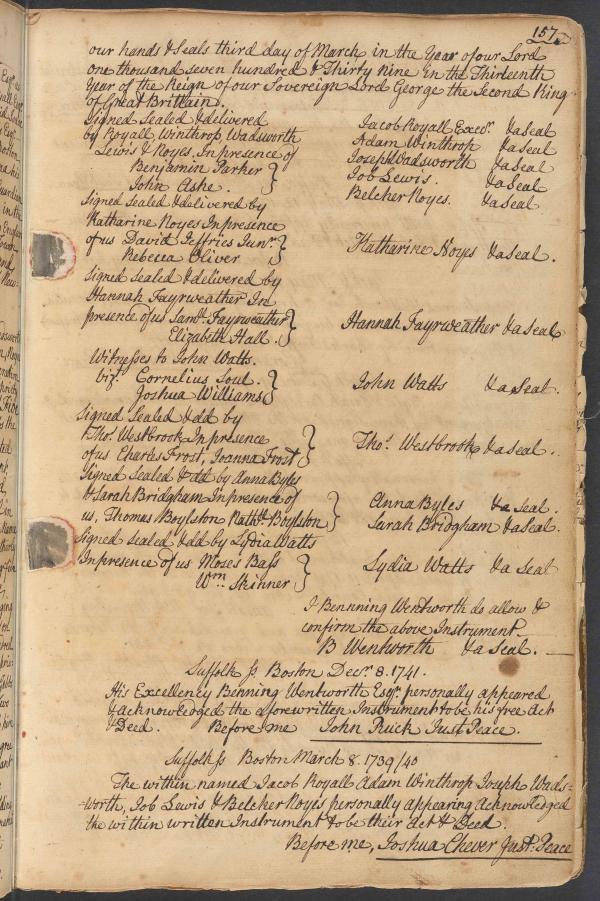 157.
our hands & Seals third day of March in the Year of our Lord
one thousand seven hundred & Thirty nine in the Thirteenth
Year of the Reign of our Sovereign Lord George the Second King
of Great Brittain.
Signed Sealed & delivered
by Royall, Winthrop, Wadsworth
Lewis & Noyes. In presence of
Benjamin Parker }
John Ashe. }
Jacob Royall Execr. & a Seal
Adam Winthrop & a Seal
Joseph Wadsworth & a Seal
Job Lewis. & a Seal
Belcher Noyes. & a Seal
Signed Sealed & delivered by
Katharine Noyes In presence
of us David Jeffries Junr. }
Rebecca Oliver }
Katharine Noyes & a Seal.
Signed Sealed & delivered by
Hannah Fayrweather In
presence of us Saml. Fayrweather }
Elizabeth Hall. }
Hannah Fayrweather & a Seal
Witnesses to John Watts.
vizt. Cornelius Soul. }
Joshua Williams }
John Watts & a Seal.
Signed Sealed & dd by
Thos. Westbrook In presence
of us Charles Frost, Joanna Frost }
Thos. Westbrook & a Seal.
Signed Sealed & dd by Anna Byles
& Sarah Bridgham In presence of
us, Thomas Boylston Boylston }
Anna Byles & a Seal.
Sarah Bridgham & a Seal.
Signed Sealed & dd by Lydia Watts
In presence of us Moses Bass
Wm. Skinner }
Lydia Watts & a Seal
I Bennning Wentworth do allow &
confirm the above Instrument
B Wentworth & a Seal.
Suffolk Ss. Boston Decr. 8. 1741.
His Excellency Benning Wentworth Esqr. personally appeared
& acknowledged the aforewritten Instrument to be his free Act
& Deed. Before me John Ruck Just Peace.
Suffolk Ss Boston March 8. 1739/40
The within named Jacob Royall Adam Winthrop Joseph Wads=
=worth, Job Lewis & Belcher Noyes personally appearing Acknowledged
the within written Instrument to be their Act & Deed.
Before me, Joshua Chever Just: Peace